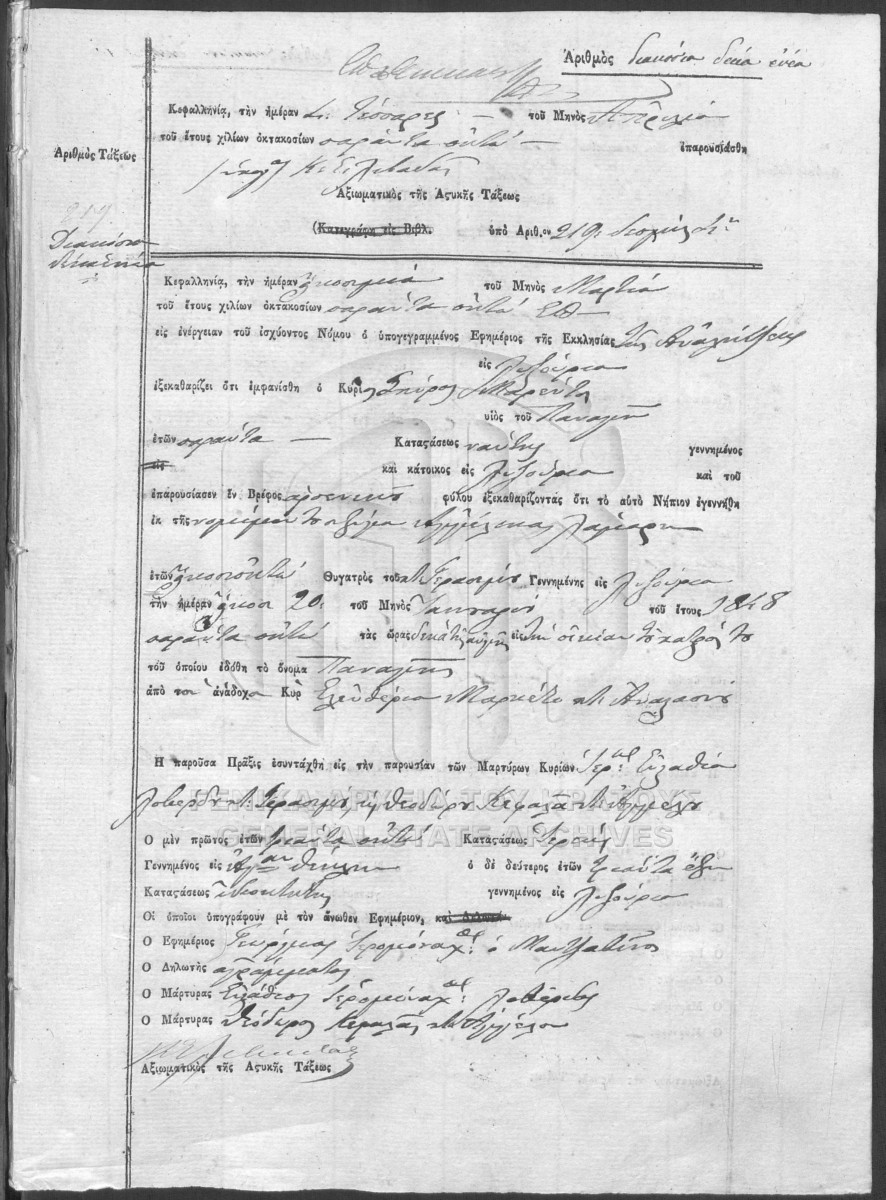 Ἀριθμὸς διακόσια δέκα ἐνέα
Κεφαλληνίᾳ, τὴν ἡμέραν 4. τέσσαρες — τοῦ Μηνὸς Ἀπριλίου
τοῦ ἔτους χιλίων ὀκτακοσίων σαράντα ὀκτώ — ἐπαρουσιάσθη
Ἀξιωματικὸς τῆς Ἀϛυκῆς Τάξεως
(Κατεγράφη εἰς Βιβλ. ὑπὸ Ἀριθ.ον 219.
Ἀριθμὸς Τάξεως
219
Διακόσια
δέκα ἐνέα
Κεφαλληνίᾳ, τὴν ἡμέραν εἴκοσι μία τοῦ Μηνὸς Μαρτίου
τοῦ ἔτους χιλίων ὀκτακοσίων σαράντα ὀκτώ Ε.Π.
εἰς ἐνέργειαν τοῦ ἰσχύοντος Νόμου ὁ ὑπογεγραμμένος Ἐφημέριος τῆς Ἐκκλησίας τῆς Ἀναλήψεως
εἰς Ληξούριον
ἐξεκαθαρίζει ὅτι ἐμφανίσθη ὁ Κύριος Σπύρος
υἱὸς τοῦ Παναγῆ
ἐτῶν σαράντα — Καταϛάσεως ναύτης γεννημένος
εἰς καὶ κάτοικος εἰς Ληξούριον καὶ τοῦ
ἐπαρουσίασεν ἓν Βρέφος ἀρσενικοῦ φύλου ἐξεκαθαρίζοντας ὅτι τὸ αὐτὸ Νήπιον ἐγεννήθη
ἐκ τῆς νομίμου του συζύγου Ἀγγέλικας
ἐτῶν εἴκοσι ὀκτώ Θυγατρὸς τοῦ Γερασίμου Γεννημένης εἰς Ληξούριον
τὴν ἡμέραν εἴκοσι 20. τοῦ Μηνὸς Ἰανουαρίου τοῦ ἔτους 1848
σαράντα ὀκτώ τὰς ὥρας δεκάτη αὐγῆς εἰς τὴν οἰκίαν τοῦ πατρός του
τοῦ ὁποίου ἐδόθη τὸ ὄνομα Παναγῆς
ἀπὸ τὸν ἀνάδοχον Κύρ Ἐλευθέριον Μαρκέτο
Ἡ παροῦσα Πρᾶξις ἐσυντάχθη εἰς τὴν παρουσίαν τῶν Μαρτύρων Κυρίων Ἱερ. Εὐλαθίου
Λοβέρδου Γερασίμου, καὶ Θεοδώρου Κεφαλᾶ Ἀγγέλου
Ὁ μὲν πρῶτος ἐτῶν τριάντα ὀκτώ Καταϛάσεως Ἱερεύς
Γεννημένος εἰς Ἁγίαν Θέκλην ὁ δὲ δεύτερος ἐτῶν τριάντα ἕξι
Καταϛάσεως ἰδιοκτήτης γεννημένος εἰς Ληξούριον
Οἱ ὁποῖοι ὑπογράφουν μὲ τὸν ἄνωθεν Ἐφημέριον, καὶ
Ὁ Ἐφημέριος Γεώργιος Ἱερομόναχος ὁ
Ὁ Δηλωτὴς ἀγράμματος
Ὁ Μάρτυρας Εὐλάθιος Ἱερομόναχος Λοβέρδος
Ὁ Μάρτυρας Θεόδωρος Κεφαλᾶς Ἀγγέλου
Ἀξιωματικὸς τῆς Ἀϛυκῆς Τάξεως
ΓΕΝΙΚΑ ΑΡΧΕΙΑ ΤΟΥ ΚΡΑΤΟΥΣ
GENERAL STATE ARCHIVES